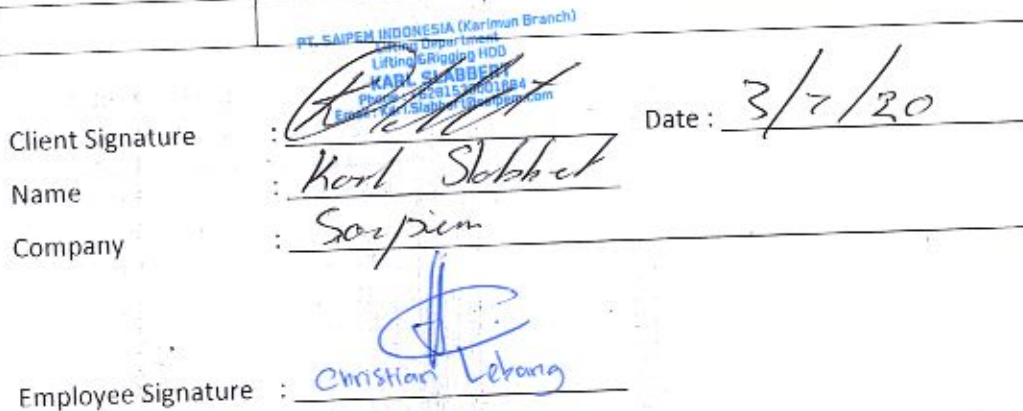 PT. SAIPEM INDONESIA (Karimun Branch)
Lifting Department
Lifting & Rigging HDD
KARL SLABBERT
Email : Karl.Slabbert@saipem.com
Client Signature :
Date : 3/7/20
Name : Karl Slabbert
Company : Saipem
Christian Lebang
Employee Signature :